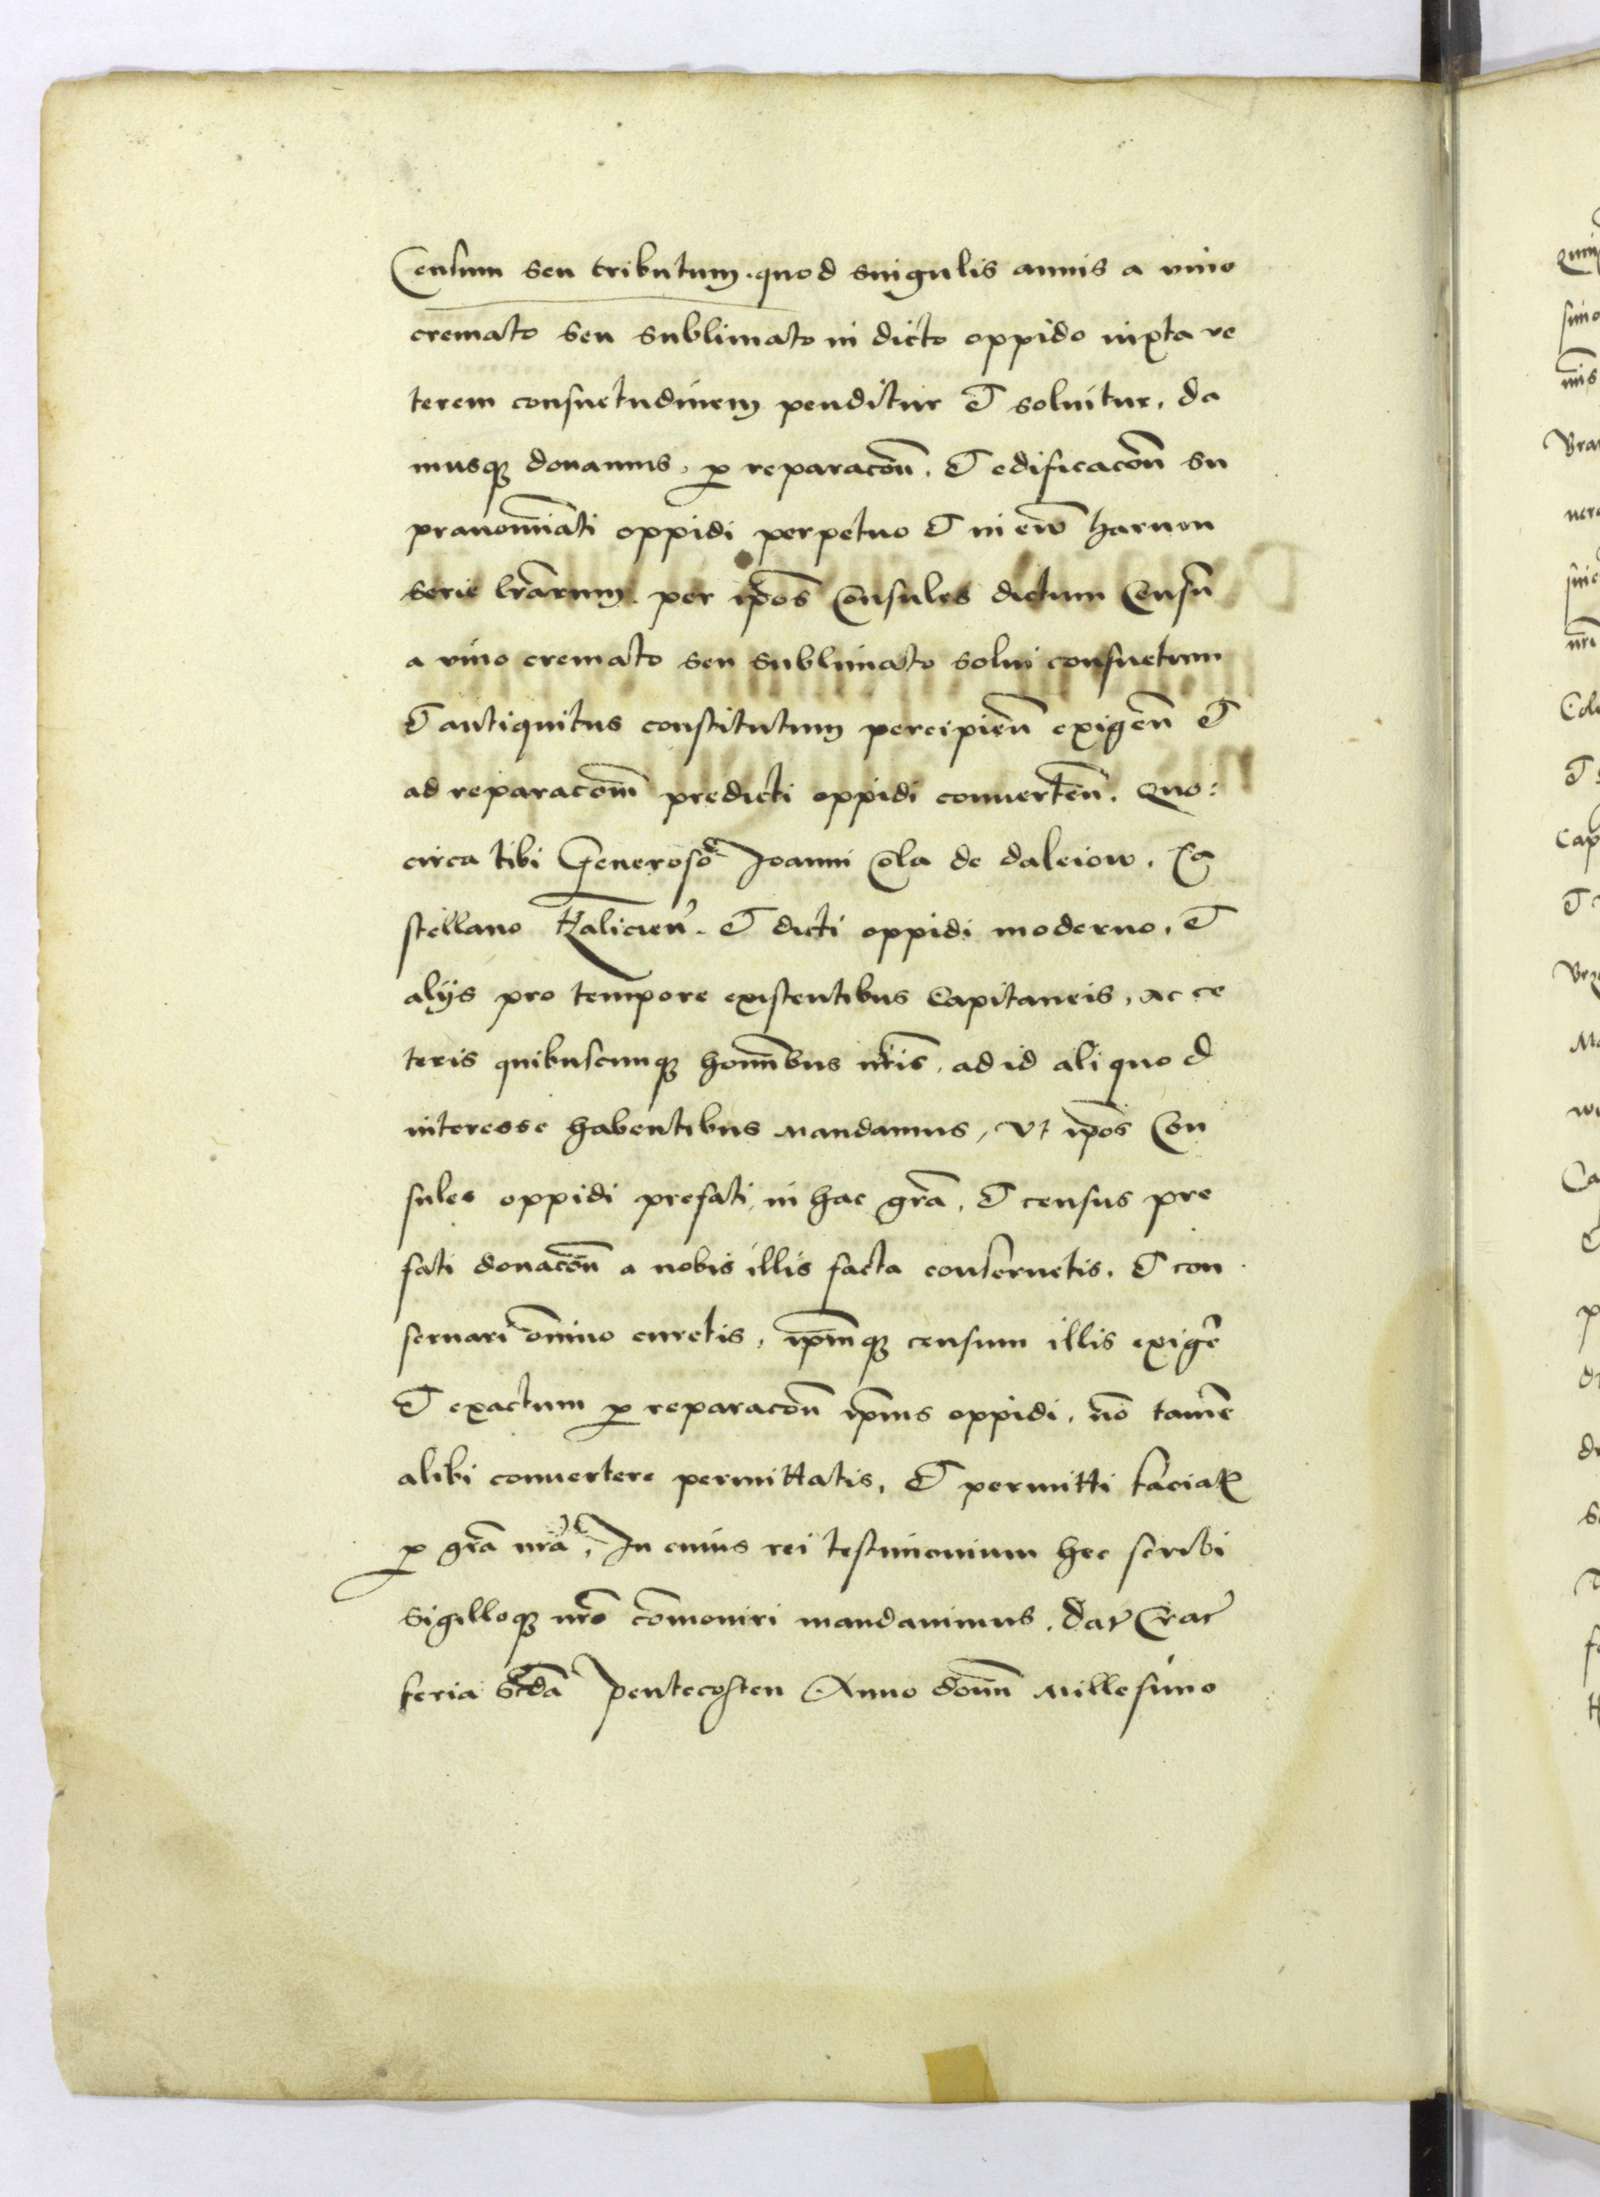 Censum seu tributum. quod singulis annis a vino
cremato seu sublimato in dicto oppido iuxta ve
terem consuetudinem penditur et soluitur, da
musq donamus, p reparacōn, et edificacōn su
pranomīati oppidi perpetuo et in ewū harum
serie lrārum. per ipōs Consules dictum Censū
a vino cremato seu sublimato solui consuetum
et antiquitus constitutum percipien̄ exigen̄ et
ad reparacōm predicti oppidi conuerten̄. Quo:
circa tibi Generoso Joanni Cola de daleiow. Ca
stellano Halicien̄. et dicti oppidi moderno, et
alijs pro tempore existentibus Capitaneis, ac ce
teris quibuscunq homībus nrīs, ad id aliquod
interesse habentibus mandamus, vt ipōs Con
sules oppidi prefati, in hac grā, et census pre
fati donacōn a nobis illis facta conseruetis, et con
seruari omīno curetis, ipmq censum illis exigē
et exactum p reparacōn ipīus oppidi, nō tamē
alibi conuertere permittatis, et permitti faciatis
p grā nrā, In cuius rei testimonium hec scribi
sigilloq nrō comōniri mandauimus. dat Crac
feria Scdā Pentecosten Anno domī Millesimo